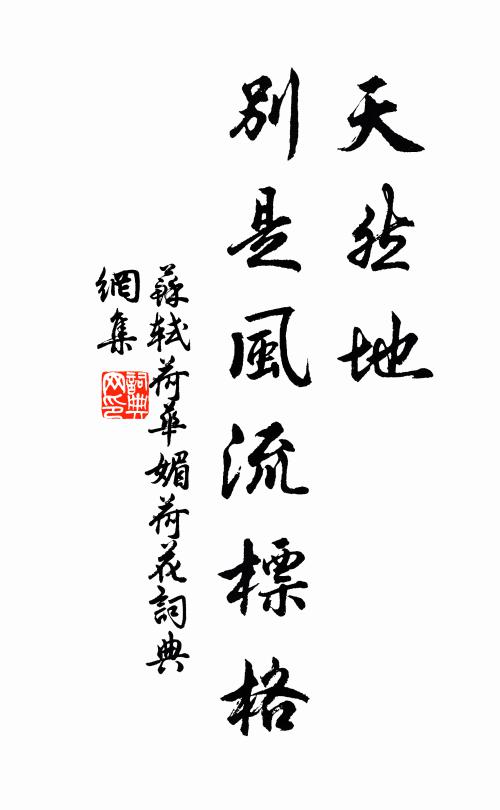 天然地
別是風流標格
蘇軾荷華媚荷花詞典
網集
詞典
网印